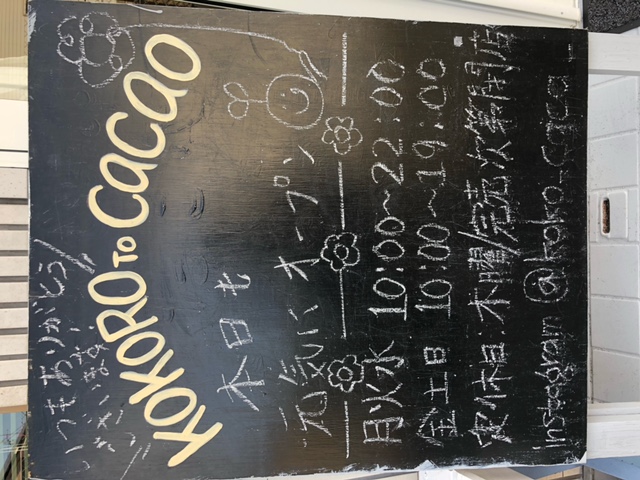 いつもありがとう
ございます!
KOKORO TO CACAO
本日も
元気に オープン
月火水 10:00~22:00
金土日 10:00~19:00
定休日:木曜/完売次第閉店
Instagram @koko_caca